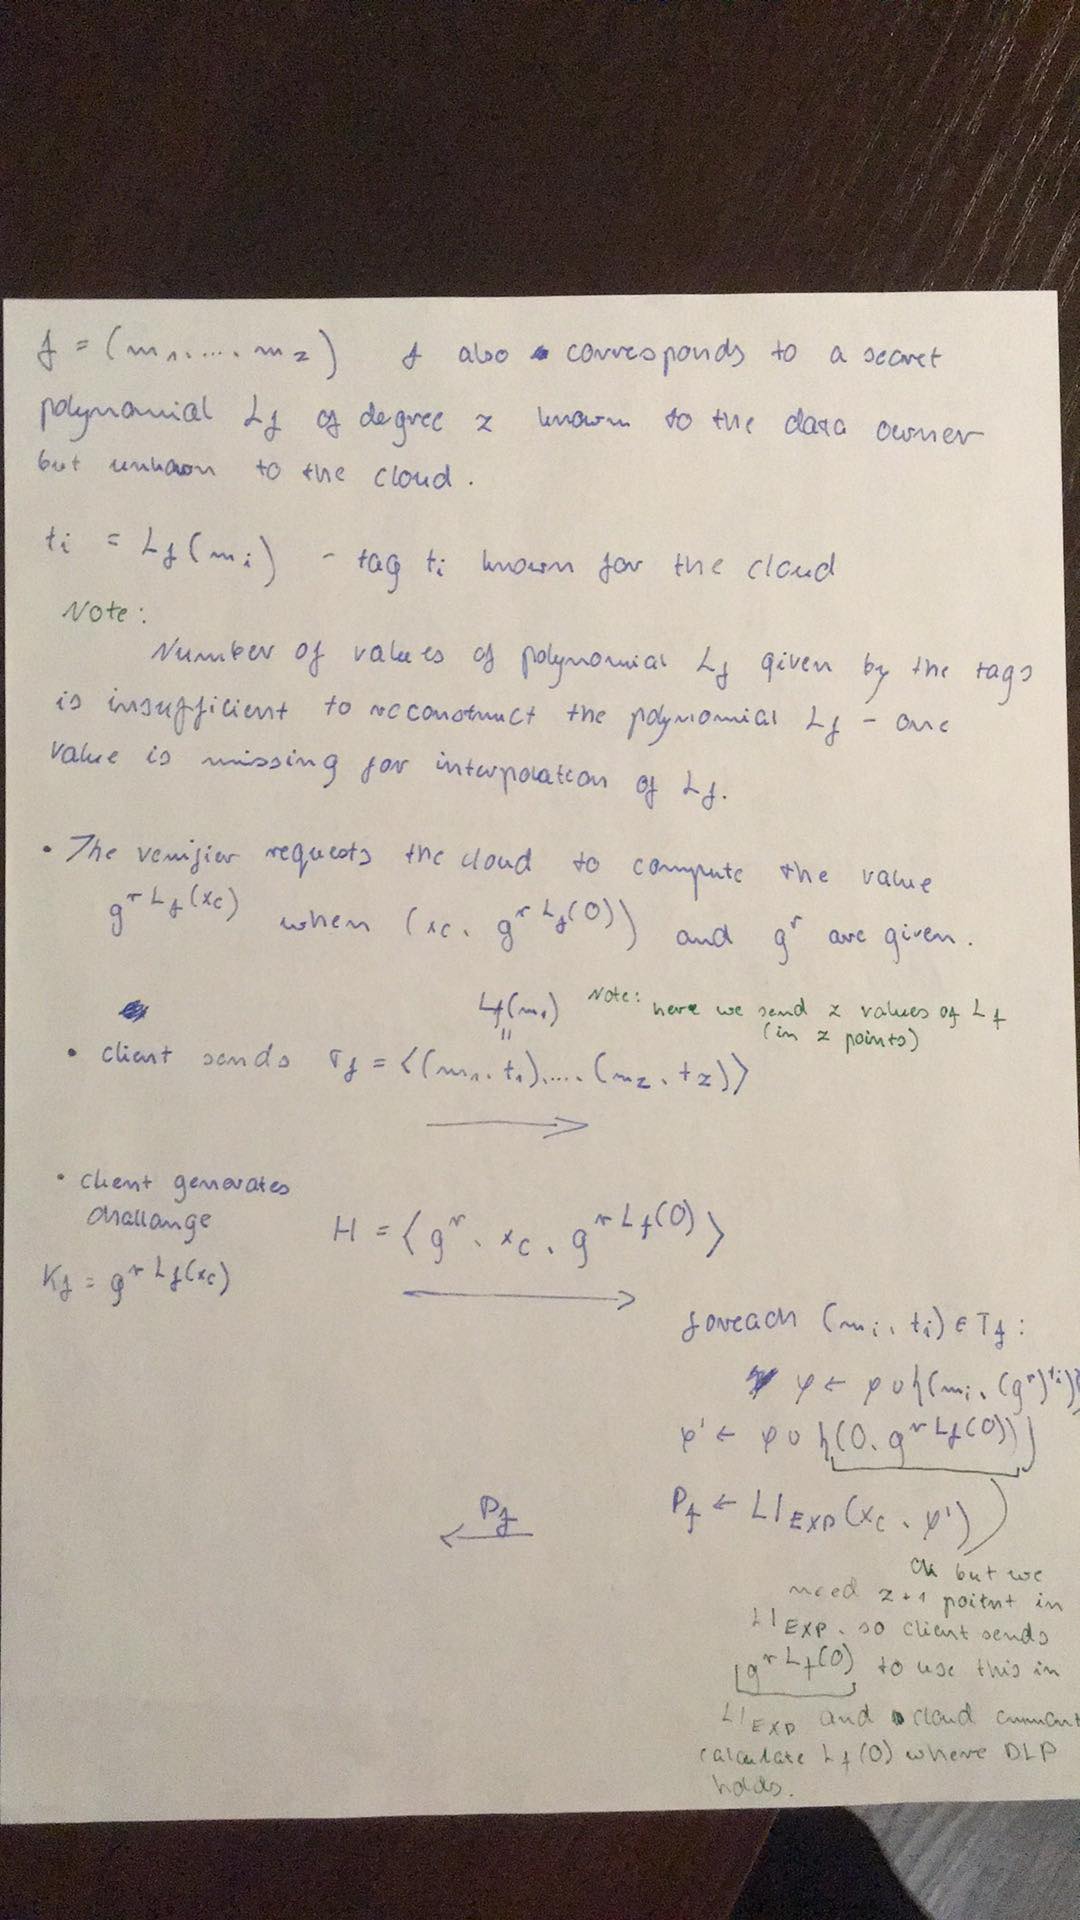 f = (m₁, ..., m_z) f also corresponds to a secret
polynomial L_f of degree z known to the data owner
but unknown to the cloud.
t_i = L_f(m_i) - tag t_i known for the cloud
Note:
Number of values of polynomial L_f given by the tags
is insufficient to reconstruct the polynomial L_f - one
value is missing for interpolation of L_f.
• The verifier requests the cloud to compute the value
g^{r L_f(x_c)} when (x_c, g^{r L_f(0)}) and g^r are given.
L_f(m₁) Note: here we send z values of L_f
(in z points)
=
• client sends T_f = <(m₁, t₁), .... (m_z, t_z)>
→
• client generates
challange
H = <g^r, x_c, g^{r L_f(0)}>
K_f = g^{r L_f(x_c)}
→
foreach (m_i, t_i) ∈ T_f:
φ ← φ ∪ {(m_i, (g^r)^{t_i})}
φ' ← φ ∪ {(0, g^{r L_f(0)})}
P_f ← LI_EXP(x_c, φ')
P_f
←
ok but we
need z+1 poitnt in
LI_EXP, so client sends
g^{r L_f(0)} to use this in
LI_EXP and cloud cannot
calculate L_f(0) where DLP
holds.